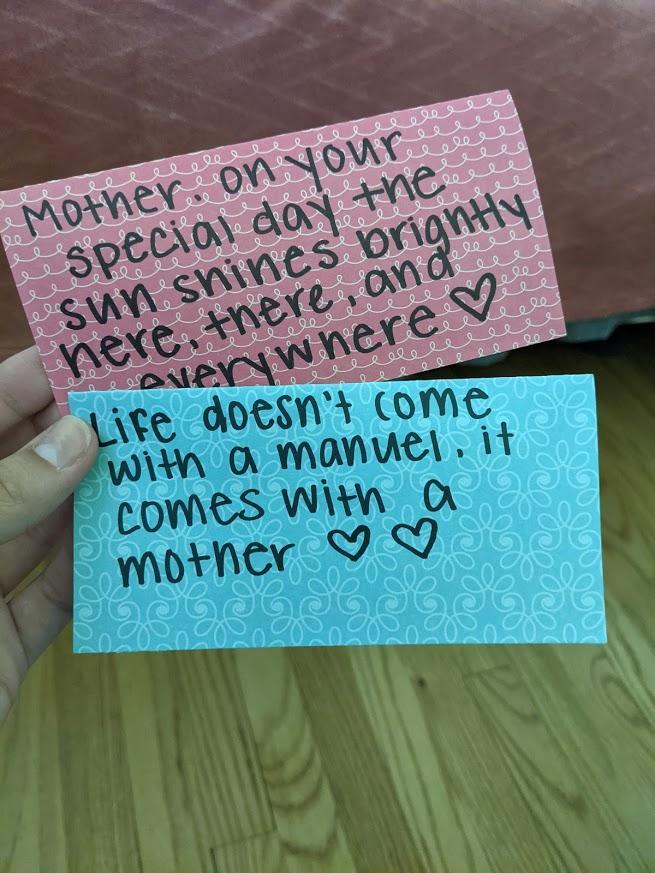 Mother. on your
special day the
sun shines brightly
here, there, and
everywhere ♡
Life doesn't come
with a manuel. it
comes with a
mother ♡ ♡